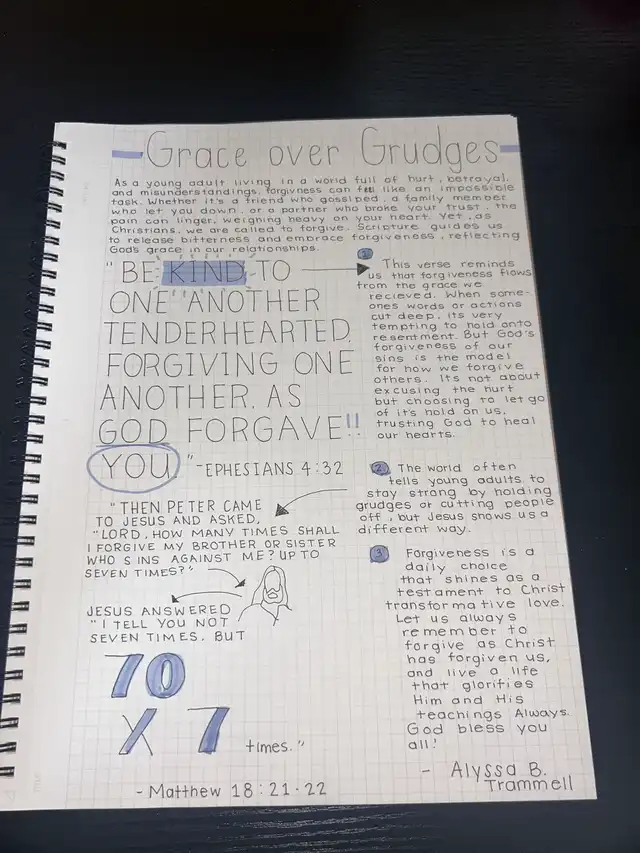 Grace over Grudges
As a young adult living in a world full of hurt, betrayal,
and misunderstandings, forgivness can feel like an impossible
task. Whether it's a friend who gossiped, a family member
who let you down, or a partner who broke your trust, the
pain can linger, weighing heavy on your heart. Yet, as
Christians, we are called to forgive. Scripture guides us
to release bitterness and embrace forgiveness, reflecting
God's grace in our relationships.
"BE KIND TO
ONE ANOTHER
TENDERHEARTED,
FORGIVING ONE
ANOTHER, AS
GOD FORGAVE!!
YOU." -EPHESIANS 4:32
"THEN PETER CAME
TO JESUS AND ASKED,
"LORD, HOW MANY TIMES SHALL
I FORGIVE MY BROTHER OR SISTER
WHO SINS AGAINST ME? UP TO
SEVEN TIMES?"
JESUS ANSWERED
"I TELL YOU NOT
SEVEN TIMES, BUT
70
X 7
times."
- Matthew 18:21-22
1
This verse reminds
us that forgiveness flows
from the grace we
recieved. When some-
ones words or actions
cut deep, its very
tempting to hold onto
resentment. But God's
forgiveness of our
sins is the model
for how we forgive
others. Its not about
excusing the hurt
but choosing to let go
of it's hold on us,
trusting God to heal
our hearts.
2 The world often
tells young adults to
stay strong by holding
grudges or cutting people
off, but Jesus shows us a
different way.
3 Forgiveness is a
daily choice
that shines as a
testament to Christ
transformative love.
Let us always
remember to
forgive as Christ
has forgiven us,
and live a life
that glorifies
Him and His
teachings Always.
God bless you
all!
- Alyssa B.
Trammell